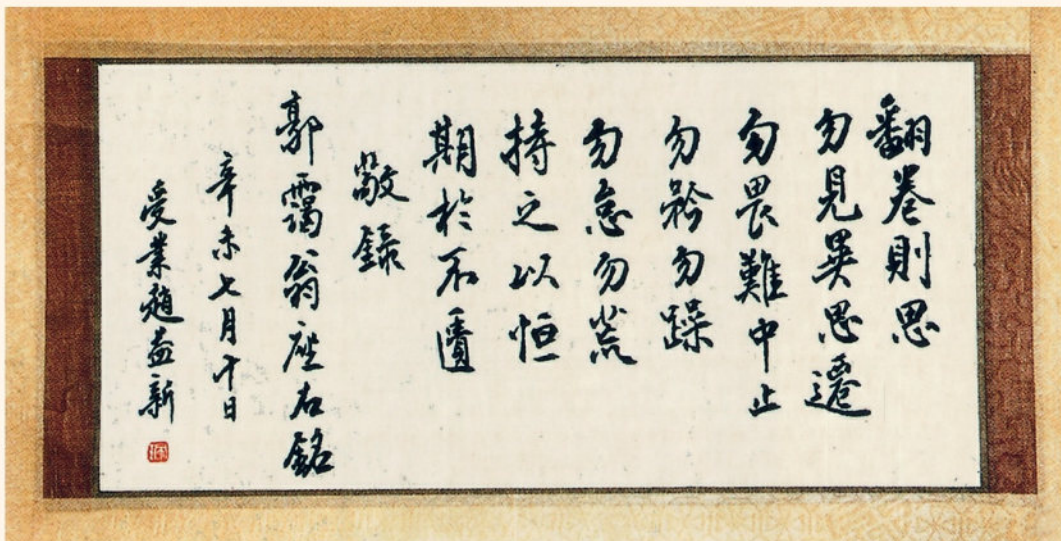 翻卷則思
勿見異思遷
勿畏難中止
勿矜勿躁
勿怠勿荒
持之以恒
期於不匱
敬錄
郭靄翁座右銘
辛未七月十日
受業趙益新